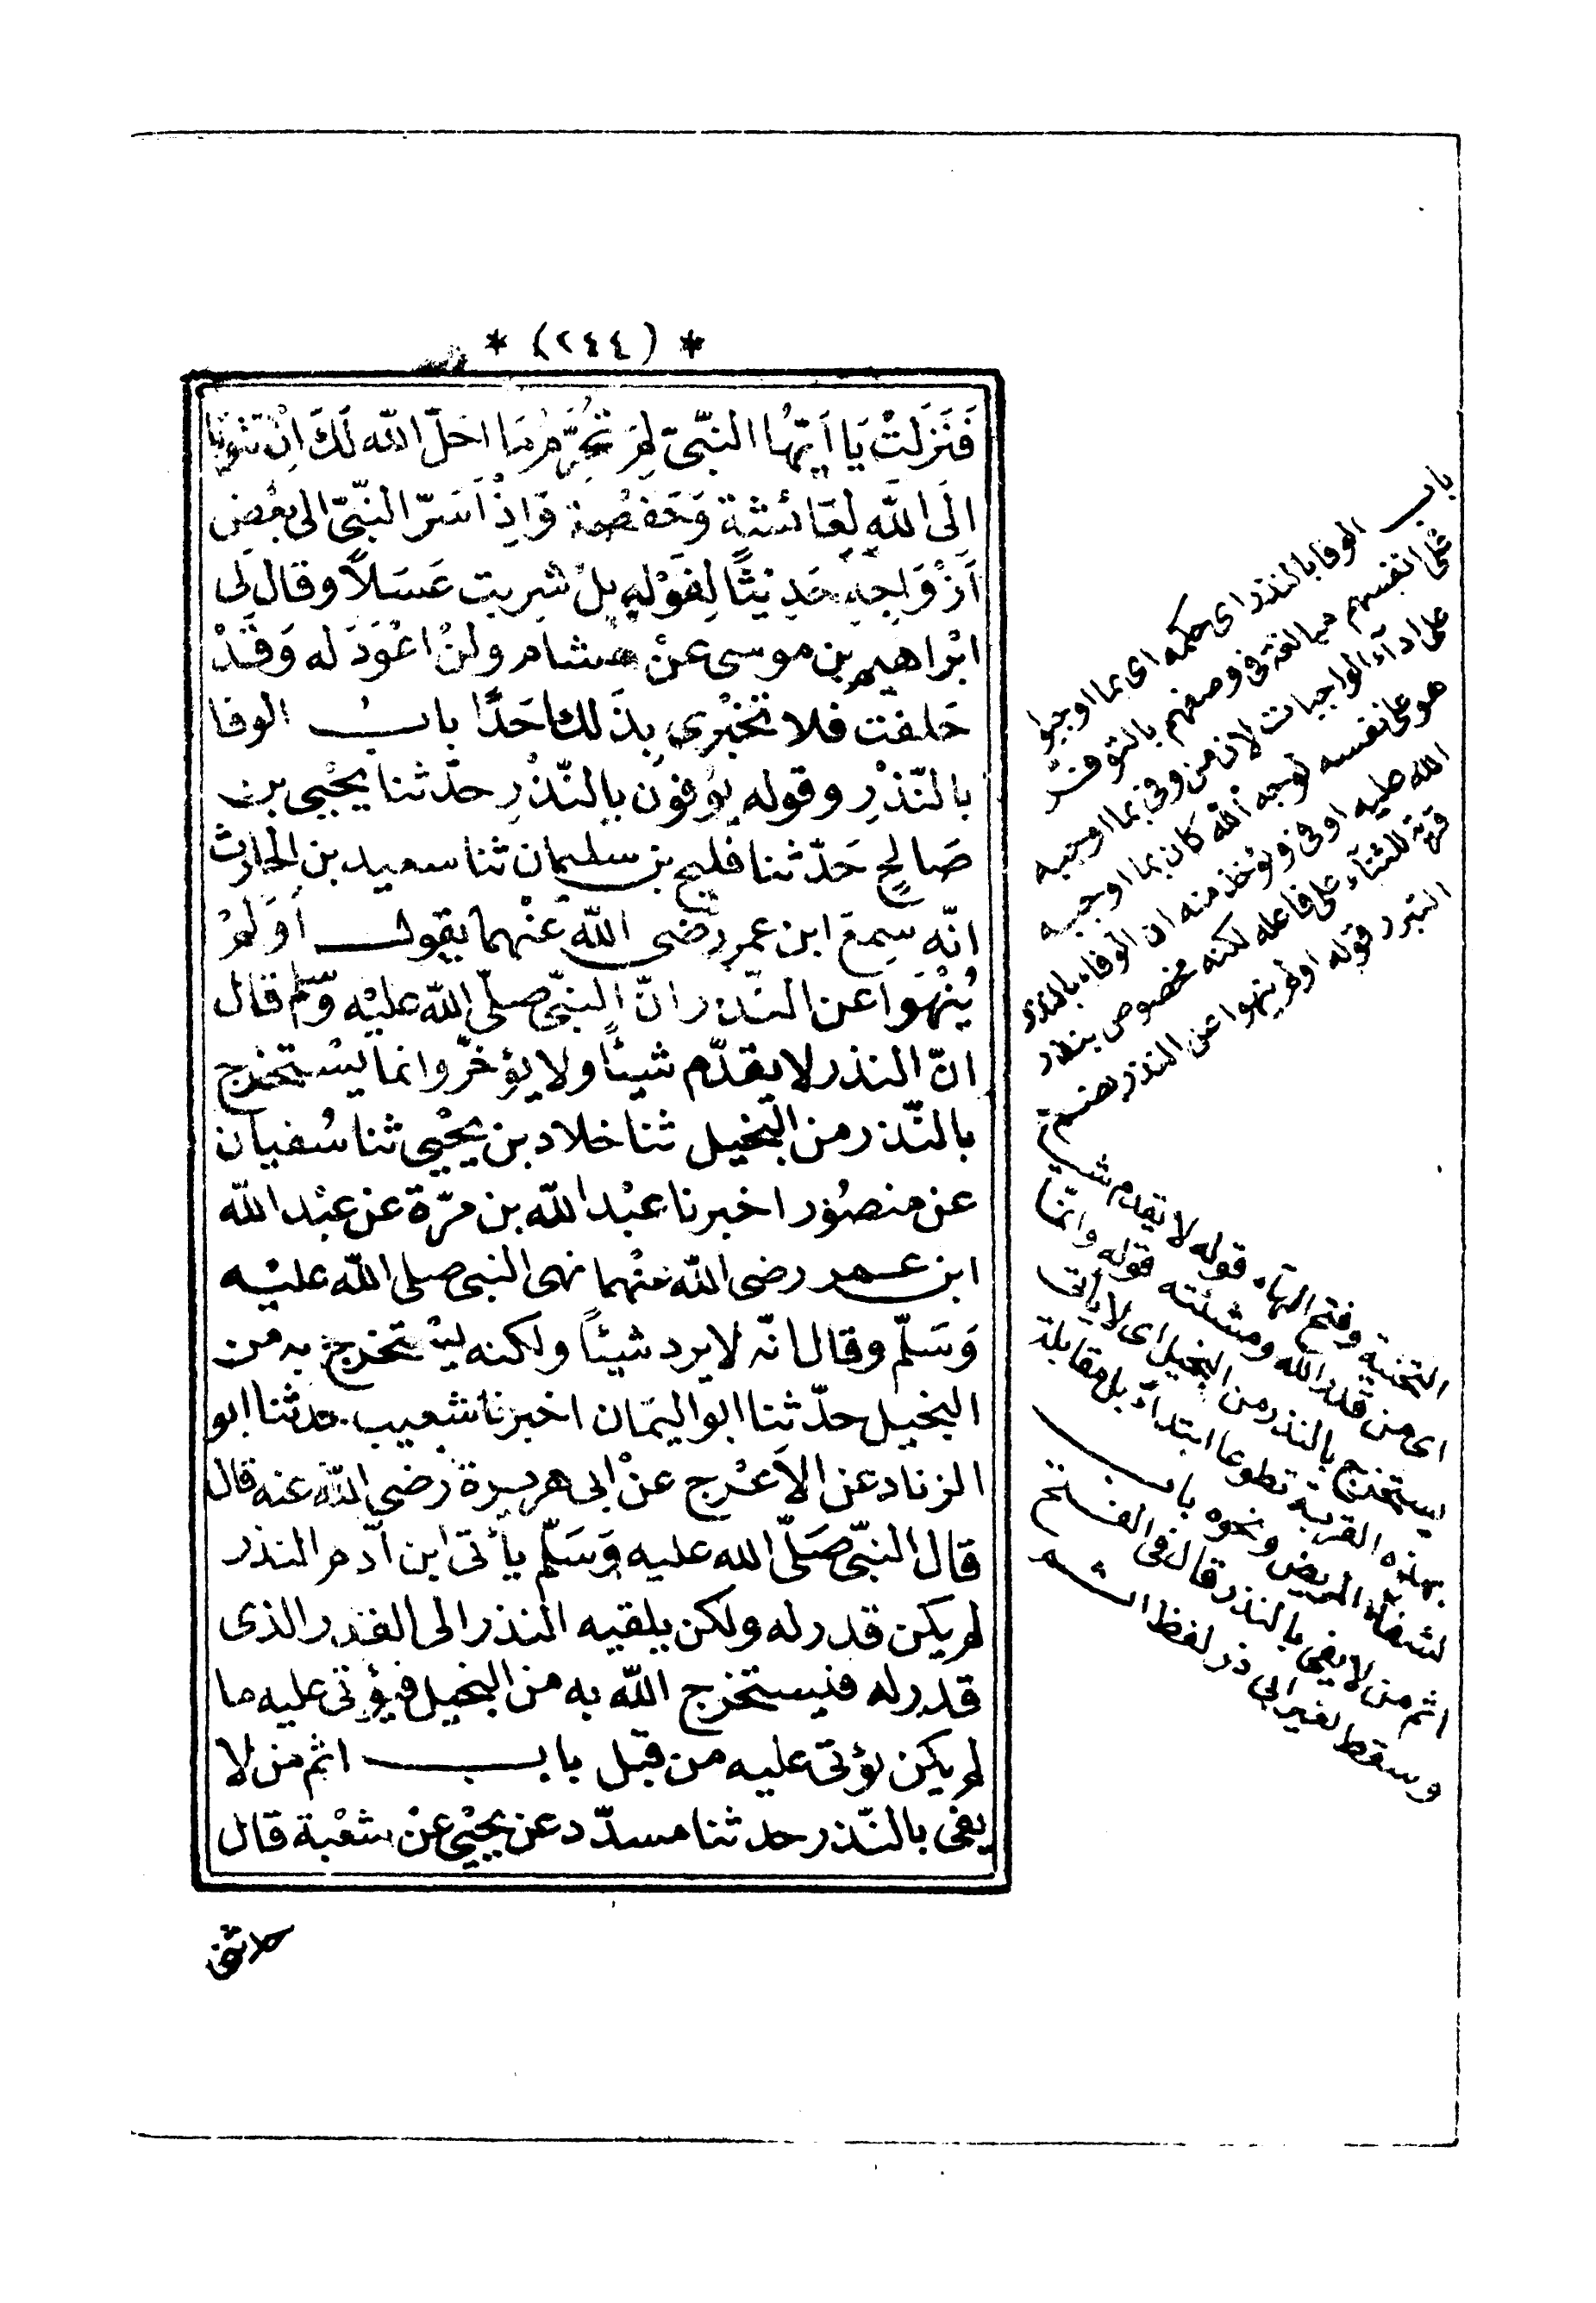 * (٢٤٤) *
فَنَزَلَتْ يَا اَيُّهَا النَّبِيّ لِمَ تُحَرِّمُ مَا اَحَلَّ اللّٰه لَكَ اِنْ تَتُوبَا
اِلَى اللّٰهِ لِعَائشَة وَحَفْصَة وَاِذْ اَسَرَّ النَّبِيّ الى بَعْضِ
اَزْوَاجِهِ حَدِيْثًا لِقَوْلِهِ بَلْ شربت عَسَلاً وقال لى
ابْراهيم بن موسى عَنْ هشام ولَنْ اَعُوْدَ له وَقَدْ
حَلفت فلا تخْبِرى بِذَلك اَحَدًا باب الوفا
بالنّذْرِ وقوله يُوْفُون بِالنّذْرِ حدّثنا يحْيى بن
صَالحٍ حَدّثنا فليح بن سليمان ثنا سعيد بن الحارث
انّه سِمعَ ابن عمر رَضى اللّٰه عَنْهما يقول اَوَلَمْ
يُنْهَوا عن النّذر انّ النبّى صلّى اللّٰه عليْه وسّلم قال
انّ النذر لا يقدّم شيئًا ولا يؤخّر وانما يسْتخرج
بالنّذر من البخيل ثنا خلاد بن يحْيى ثنا سُفيان
عن منصُور اخبرنا عبْد اللّٰه بن مرّة عن عبْد اللّٰه
ابن عمر رضى اللّٰه عنْهما نهى النبى صلى اللّٰه عليْه
وَسَلّم وقال انّه لا يرد شيئاً ولكنه يسْتخرج به من
البخيل حدّثنا ابو اليمَان اخبرنا شعيب حدثنا ابو
الزناد عن الاَعْرج عنْ ابى هريرة رضى اللّٰه عنه قال
قال النبّى صَلّى اللّٰه عليه وَسَلّم يأتى ابن آدَم النذر
لم يكن قدر له ولكن يلقيه النذر الى القدر الذى
قدر له فيستخرج اللّٰه به من البخيل فيؤتى عليه ما
لم يكن يؤتى عليه من قبل باب اثم من لا
يفى بالنّذر حدثنا مسدّد عن يحْيى عنْ شعْبة قال
باب الوفا بالنذر اى حكمه اى بما اوجبوا
على انفسهم مبالغة فى وصفهم بالتوفر
على ادآء الواجبات لان من وفى بما اوجبه
هو على نفسه لوجه اللّٰه كان بما اوجبه
اللّٰه عليه اوفى ويؤخذ منه ان الوفاء بالنذر
قربة للثنآء على فاعله لكنه مخصوص بنذر
التبرر قوله اولم ينهوا عن النذر بضم
التحتية وفتح الهآء قوله لا يقدم شيئا
اى من قدر اللّٰه ومشئته قوله وانّما
يستخرج بالنذر من البخيل اى لا ياتى
بهذه القربة تطوعا ابتدآءً بل مقابلة
لشفآء المريض ونحوه باب
اثم من لا يفى بالنذر قال فى الفتح
وسقط لغير ابى ذر لفظ اثم
حدثنى